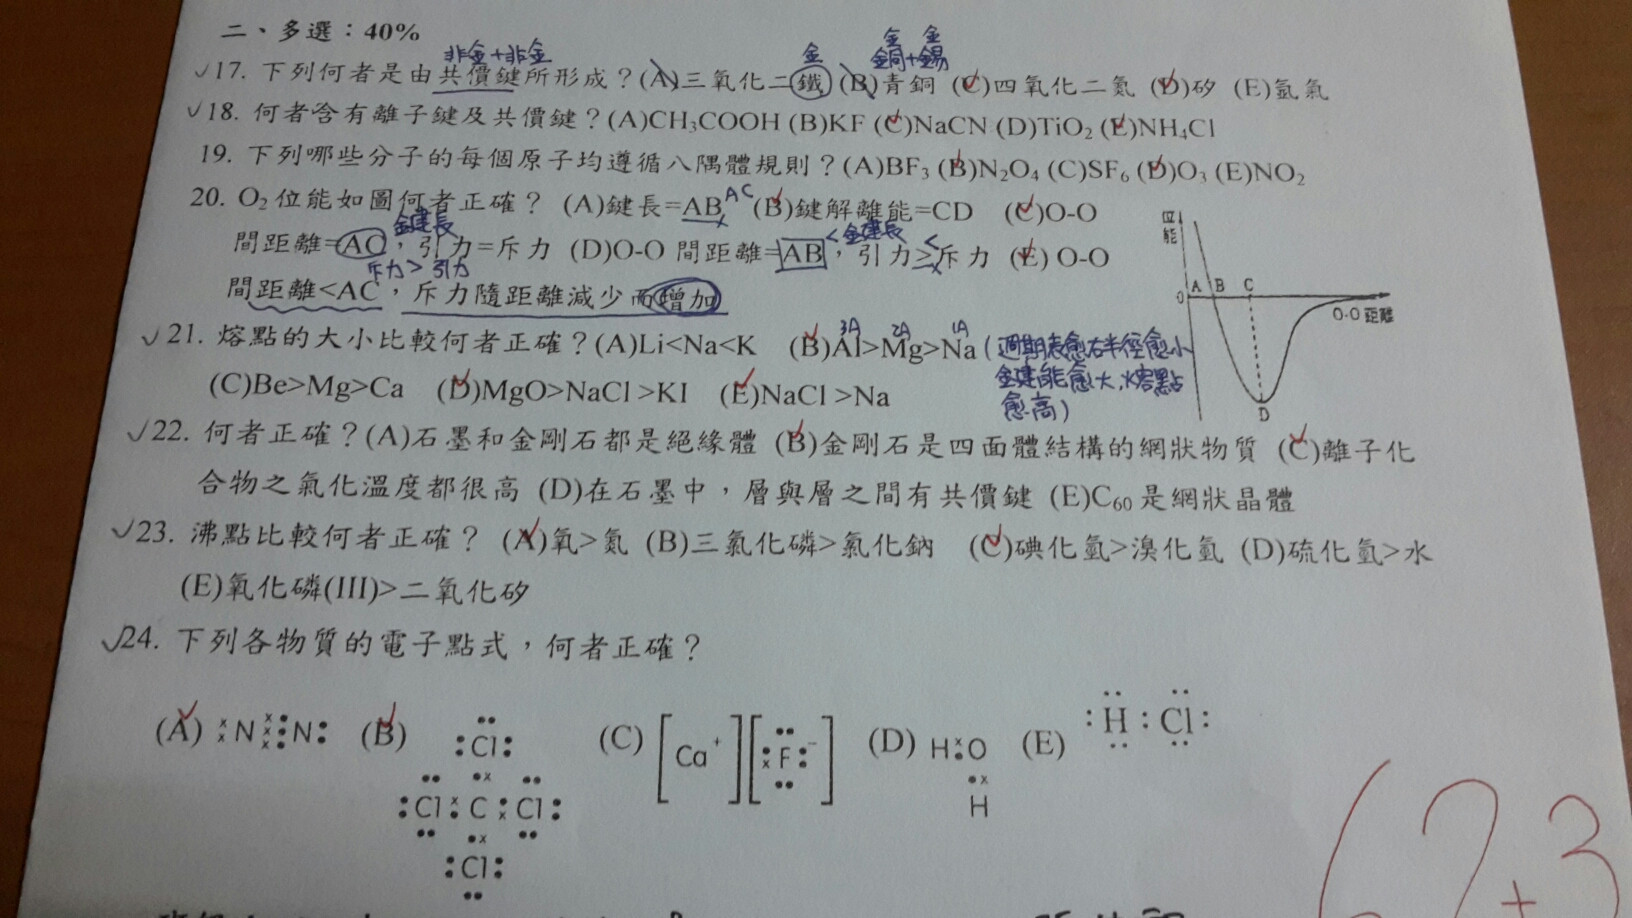 二、多選：40%
非金+非金 金 金 金
銅+錫
17. 下列何者是由共價鍵所形成？(A)三氧化二鐵 (B)青銅 (C)四氧化二氮 (D)矽 (E)氬氣
18. 何者含有離子鍵及共價鍵？(A)CH₃COOH (B)KF (C)NaCN (D)TiO₂ (E)NH₄Cl
19. 下列哪些分子的每個原子均遵循八隅體規則？(A)BF₃ (B)N₂O₄ (C)SF₆ (D)O₃ (E)NO₂
20. O₂位能如圖何者正確？ (A)鍵長=AB AC (B)鍵解離能=CD (C)O-O
鍵長 <鍵長 <
間距離=AC，引力=斥力 (D)O-O 間距離=AB，引力>斥力 (E) O-O
斥力>引力
間距離<AC，斥力隨距離減少而增加
位能
0 A B C
O-O 距離
D
3A 2A 1A
21. 熔點的大小比較何者正確？(A)Li<Na<K (B)Al>Mg>Na (週期表愈右半徑愈小
鍵能愈大,熔點
愈高)
(C)Be>Mg>Ca (D)MgO>NaCl >KI (E)NaCl >Na
22. 何者正確？(A)石墨和金剛石都是絕緣體 (B)金剛石是四面體結構的網狀物質 (C)離子化
合物之氣化溫度都很高 (D)在石墨中，層與層之間有共價鍵 (E)C₆₀是網狀晶體
23. 沸點比較何者正確？ (A)氧>氮 (B)三氯化磷>氯化鈉 (C)碘化氫>溴化氫 (D)硫化氫>水
(E)氧化磷(III)>二氧化矽
24. 下列各物質的電子點式，何者正確？
(A) N N (B) Cl Cl C Cl Cl (C) [Ca⁺][F⁻] (D) H O H (E) H : Cl
62+3